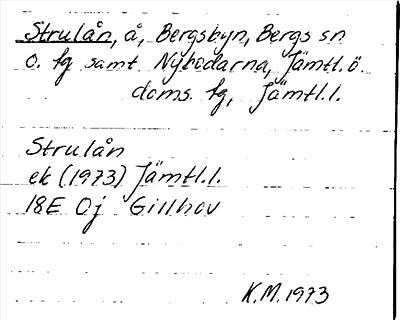 Strulån, å, Bergsbyn, Bergs sn
o. fg samt Nybodarna, Jämtl.ö.
doms. fg, Jämtl.l.
Strulån
ek (1973) Jämtl.l.
18E 0j Gillhov
K.M. 1973